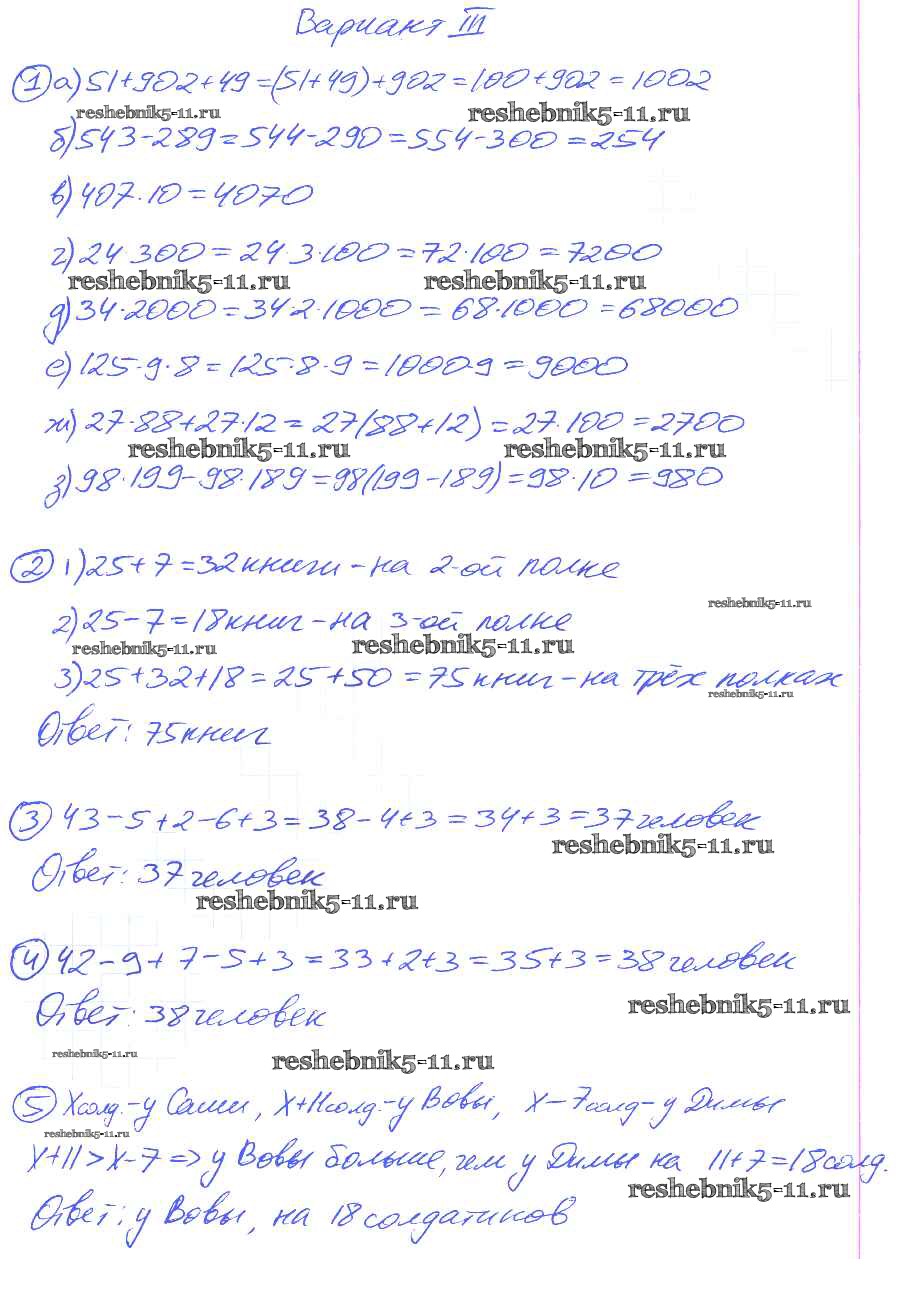 Вариант III
① а) 51+902+49=(51+49)+902=100+902=1002
reshebnik5-11.ru reshebnik5-11.ru
б) 543-289=544-290=554-300=254
в) 407·10=4070
г) 24·300=24·3·100=72·100=7200
reshebnik5-11.ru reshebnik5-11.ru
д) 34·2000=34·2·1000=68·1000=68000
е) 125·9·8=125·8·9=1000·9=9000
ж) 27·88+27·12=27(88+12)=27·100=2700
reshebnik5-11.ru reshebnik5-11.ru
з) 98·199-98·189=98(199-189)=98·10=980
② 1) 25+7=32 книги - на 2-ой полке
reshebnik5-11.ru
2) 25-7=18 книг - на 3-ей полке
reshebnik5-11.ru reshebnik5-11.ru
3) 25+32+18=25+50=75 книг - на трёх полках
reshebnik5-11.ru
Ответ: 75 книг
③ 43-5+2-6+3=38-4+3=34+3=37 человек
reshebnik5-11.ru
Ответ: 37 человек
reshebnik5-11.ru
④ 42-9+7-5+3=33+2+3=35+3=38 человек
reshebnik5-11.ru
Ответ: 38 человек
reshebnik5-11.ru reshebnik5-11.ru
⑤ x солд.-у Саши, x+11 солд.-у Вовы, x-7 солд-у Димы
reshebnik5-11.ru
x+11>x-7=>у Вовы больше, чем у Димы на 11+7=18 солд.
reshebnik5-11.ru
Ответ: у Вовы, на 18 солдатиков